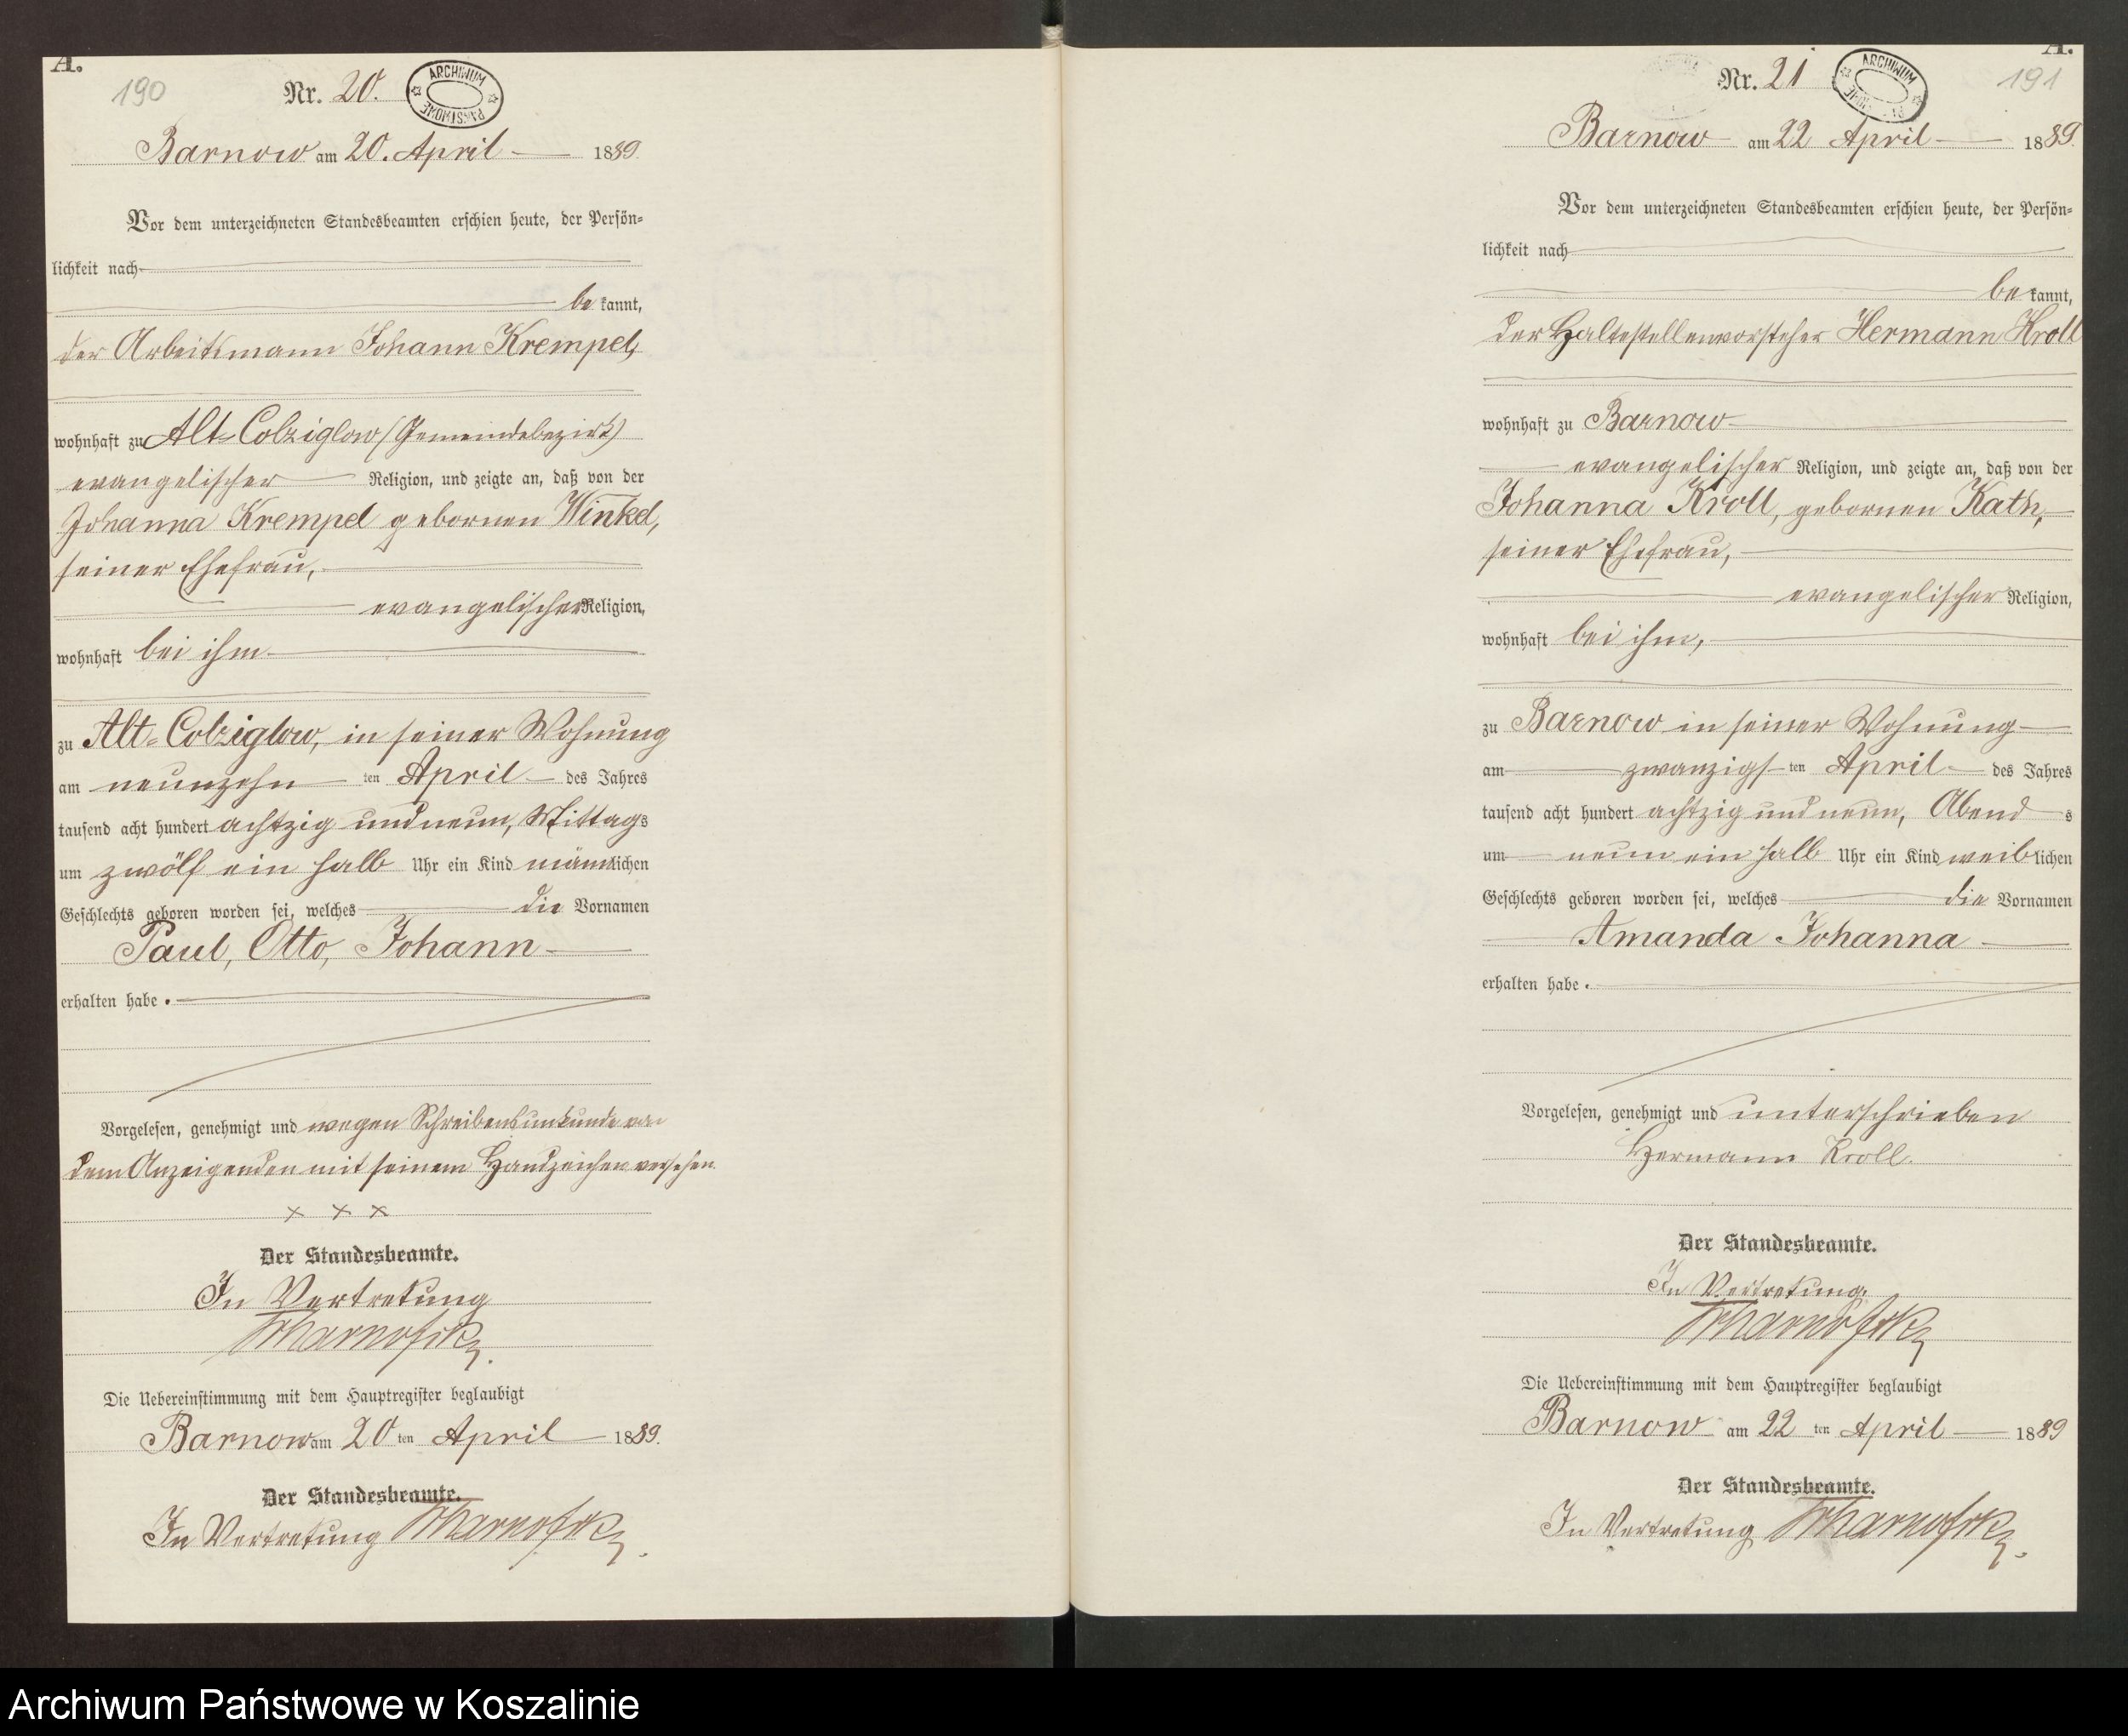 A.
190
Nr. 20.
ARCHIWUM PAŃSTWOWE
Barnow am 20. April 1889.
Vor dem unterzeichneten Standesbeamten erschien heute, der Persön-
lichkeit nach
be kannt,
der Arbeitsmann Johann Krempel,
wohnhaft zu Alt-Colziglow (Gemeindebezirk)
evangelischer Religion, und zeigte an, daß von der
Johanna Krempel gebornen Winkel,
seiner Ehefrau,
evangelischer Religion,
wohnhaft bei ihm
zu Alt-Colziglow, in seiner Wohnung
am neunzehn ten April des Jahres
tausend acht hundert achtzig und neun, Mittags
um zwölf ein halb Uhr ein Kind männlichen
Geschlechts geboren worden sei, welches die Vornamen
Paul, Otto, Johann
erhalten habe.
Vorgelesen, genehmigt und wegen Schreibensunkunde von
dem Anzeigenden mit seinem Handzeichen versehen.
x x x
Der Standesbeamte.
In Vertretung
Die Uebereinstimmung mit dem Hauptregister beglaubigt
Barnow am 20 ten April 1889.
Der Standesbeamte.
In Vertretung
A.
191
Nr. 21
ARCHIWUM
Barnow am 22 April 1889.
Vor dem unterzeichneten Standesbeamten erschien heute, der Persön-
lichkeit nach
be kannt,
der Haltestellenvorsteher Hermann Kroll
wohnhaft zu Barnow
evangelischer Religion, und zeigte an, daß von der
Johanna Kroll, gebornen Kath,
seiner Ehefrau,
evangelischer Religion,
wohnhaft bei ihm,
zu Barnow in seiner Wohnung
am zwanzigs ten April des Jahres
tausend acht hundert achtzig und neun, Abend s
um neun ein halb Uhr ein Kind weiblichen
Geschlechts geboren worden sei, welches die Vornamen
Amanda Johanna
erhalten habe.
Vorgelesen, genehmigt und unterschrieben
Hermann Kroll.
Der Standesbeamte.
In Vertretung.
Die Uebereinstimmung mit dem Hauptregister beglaubigt
Barnow am 22 ten April 1889
Der Standesbeamte.
In Vertretung
Archiwum Państwowe w Koszalinie